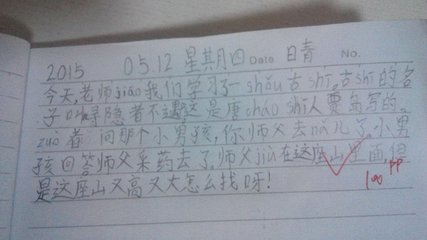 2015 0512 星期四 Date 日青 No.
今天,老师jiāo我们学习了一shǒu古shī。古shī的名
字叫寻隐者不遇这是唐cháo shī人贾岛写的。
zuò者 问那个小男孩,你师父去nǎ儿了,小男
孩回答师父采药去了,师父jiù在这座山里面,但
是这座山又高又大怎么找呀!
100 pp